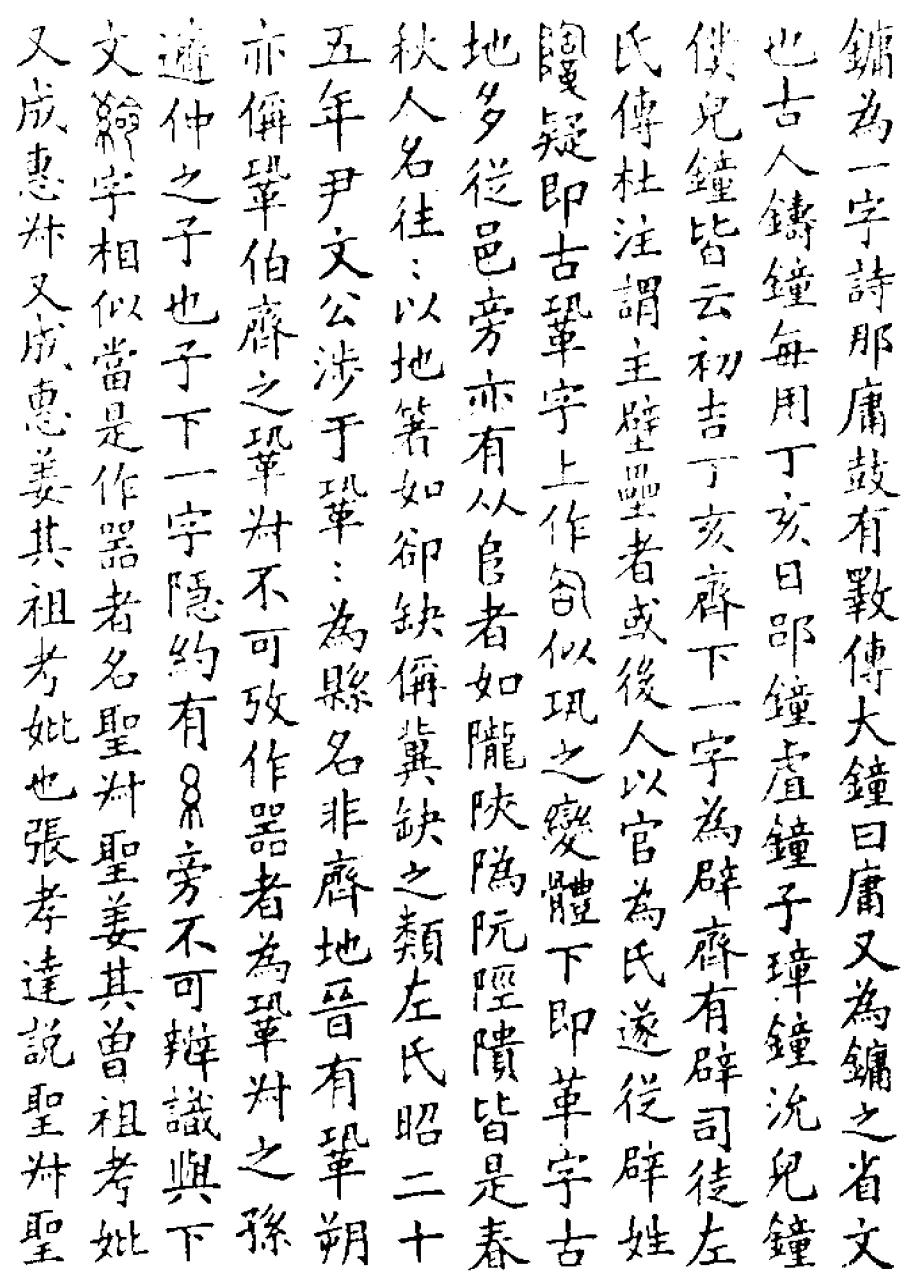 鏞為一字詩那庸鼓有斁傳大鐘曰庸又為鏞之省文
也古人鑄鐘每用丁亥日郘鐘虘鐘子璋鐘沇兒鐘
僕兒鐘皆云初吉丁亥齊下一字為辟齊有辟司徒左
氏傳杜注謂主壁壘者或後人以官為氏遂從辟姓
疑即古鞏字上作似巩之變體下即革字古
地多從邑旁亦有从𨸏者如隴陝隖阮陘隤皆是春
秋人名往〻以地箸如郤缺偁冀缺之類左氏昭二十
五年尹文公涉于鞏〻為縣名非齊地晉有鞏朔
亦偁鞏伯齊之鞏𠦑不可攷作器者為鞏𠦑之孫
遰仲之子也子下一字隱約有旁不可辯識與下
文字相似當是作器者名聖𠦑聖姜其曾祖考妣
又成惠𠦑又成惠姜其祖考妣也張孝達說聖𠦑聖